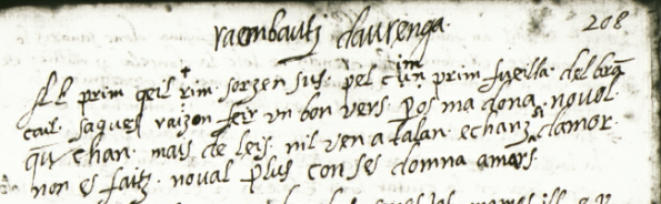 raembautz daurenga. 208
prim qeil rim. sorzen sus. pel cim prim fueilla. del brā
cail. saques raizon feir vn bon vers. pos ma dona. no uol.
chan. mais de leis. nil ven a talan. e chanz si damor.
non es faitz. no val plus con ses domna amors.